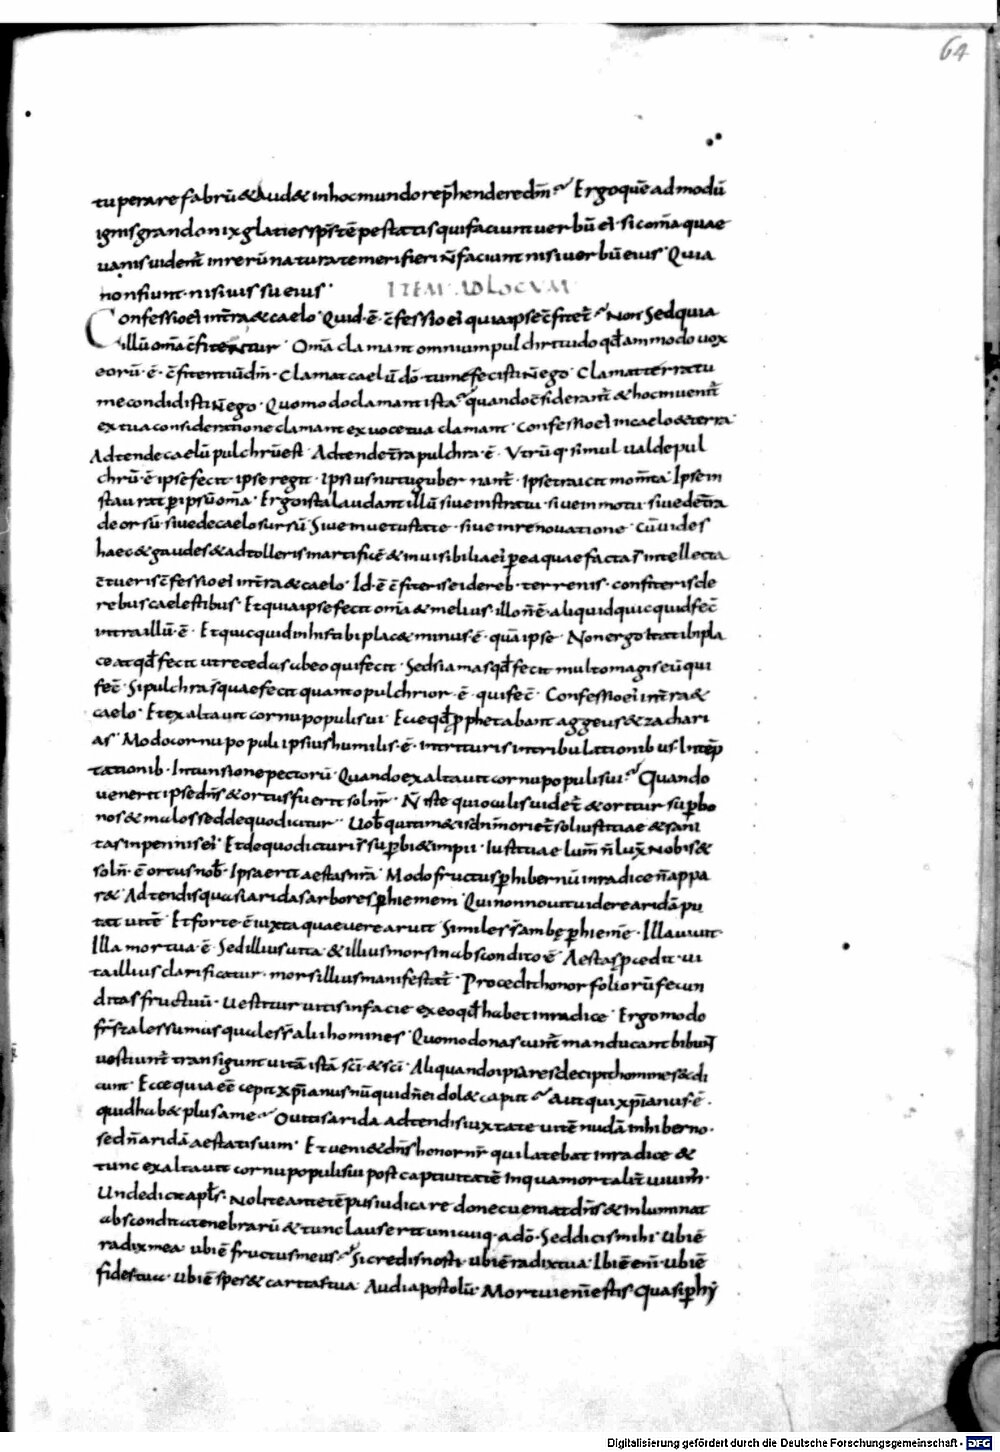 64
tuperare fabrū & aud& inhocmundo rep̄hendere dm̄? Ergo quē ad modū
ignis grando nix glacies sp̄s tēpestatis qui faciunt uerbū ei᾽ si com̄a quae
uanis uident̄ in rerū natura temere fieri n̄ faciunt nisi uerbū eius Quia
non fiunt nisi iussu eius· ITEM AD LOCUM
Confessio ei᾽ int̄ra & caelo· Quid ē c̄fessio ei᾽ quia ipse c̄fitet̄? Non Sed quia
illū om̄a c̄fitentur Om̄a clamant omnium pulchritudo qd̄ammodo uox
eorū ē c̄fitentiū dm̄· Clamat caelū dō· tu me fecisti n̄ ego· Clamat terra tu
me condidisti n̄ ego· Quomodo clamant ista? quando c̄siderant̄ & hoc inuenit̄
ex tua consideratione clamant ex uoce tua clamant Confessio ei᾽ in caelo & terra
Adtende caelū pulchrū est Adtende t̄ra pulchra ē· Utrūq· simul ualde pul
chrū ē ipse fecit· ipse regit· Ipsius nutu gubernant̄· Ipse traicit mom̄ta Ipse in
staurat p̄ ipsū om̄a· Ergo ista laudant illū siue in statu· siue in motu· siue de t̄ra
deorsū· siue de caelo sursū Siue in uetustate· siue in renouatione· Cū uides
haec & gaudes & adtolleris in artificē & inuisibilia ei᾽ p̄ ea quae facta s̄ intellecta
c̄tueris c̄fessio ei᾽ int̄ra & caelo· Id ē c̄fiteris ei de reb· terrenis· confiteris de
rebus caelestibus· Et quia ipse fecit om̄a & melius illo n̄ ē· aliquid quicquid fec̄
intra illū ē· Et quicquid in his tibi plac& minus ē· quā ipse· Non ergo ita tibi pla
ceat qd̄ fecit ut recedas ab eo qui fecit· Sed si amas qd̄ fecit multo magis eū qui
fec̄· Si pulchra s̄ quae fecit quanto pulchrior ē· qui fec̄· Confessio ei᾽ int̄ra &
caelo· Et exaltauit cornu populi sui· Ecce qd̄ p̄phetabant aggeus & zachari
as· Modo cornu populi ipsius humilis ē· in trituris in tribulationibus· In tēp
tationib· In tunsione pectorū· Quando exaltauit cornu populi sui? Quando
uenerit ipse dn̄s & ortus fuerit sol nr̄· N̄ iste qui oculis uidet̄ & oritur sup̄ bo
nos & malos sed de quo dicitur· Uob̄ qui tim&is dn̄m oriet̄ sol iustitiae & sani
tas in pennis ei᾽· Et de quo dicturi s̄ sup̄bi & impii· Iustitiae lum̄ n̄ lux̄ nobis &
sol n̄ ē ortus nob̄· Ipsa erit aestas nr̄a· Modo fructus p̄ hibernū in radice n̄ appa
r&· Adtendis quasi aridas arbores p̄ hiemem· Qui non nouit uidere aridā pu
tat uitē· Et forte ē iuxta quae uere aruit Similes s̄ ambę p̄ hiemē· Illa uiuit·
Illa mortua ē· Sed illius uita & illius mors in abscondito ē· Aestas p̄cedit· ui
ta illius clarificatur· mors illius manifestat̄· Procedit honor foliorū fecun
ditas fructuū· Uestitur uitis in facie ex eo qd̄ habet in radice· Ergo modo
fr̄s tales sumus quales s̄ alii homines· Quomodo nascunt̄ manducant bibunt
uestiunt̄ transigunt uitā istā sc̄i & sc̄i· Aliquando ipsa res decipit homines & di
cunt· Ecce quia eē cepit xp̄ianus nū quid n̄ ei dol& caput? Aut qui xp̄ianus ē·
quid hab& plus a me? O uitis arida adtendis iuxta te uitē nudā in hiberno·
sed n̄ aridā aestatis uim· Et ueni& dn̄s honor nr̄ qui latebat in radice &
tunc exaltauit cornu populi sui post captiuitatē In qua mortalit̄ uiuim̄·
Unde dicit apl̄s· Nolite ante tēpus iudicare donec ueniat dn̄s & inluminat
abscondita tenebrarū & tunc laus erit unicuiq· a dō· Sed dicis mihi ubi ē
radix mea ubi ē fructus meus? Si credis nosti· ubi ē radix tua· Ibi ē eni᾽ ubi ē
fides tua· ubi ē spes & caritas tua· Audi apostolū· Mortui eni᾽ estis· Quasi p̄ hy
Digitalisierung gefördert durch die Deutsche Forschungsgemeinschaft - DFG